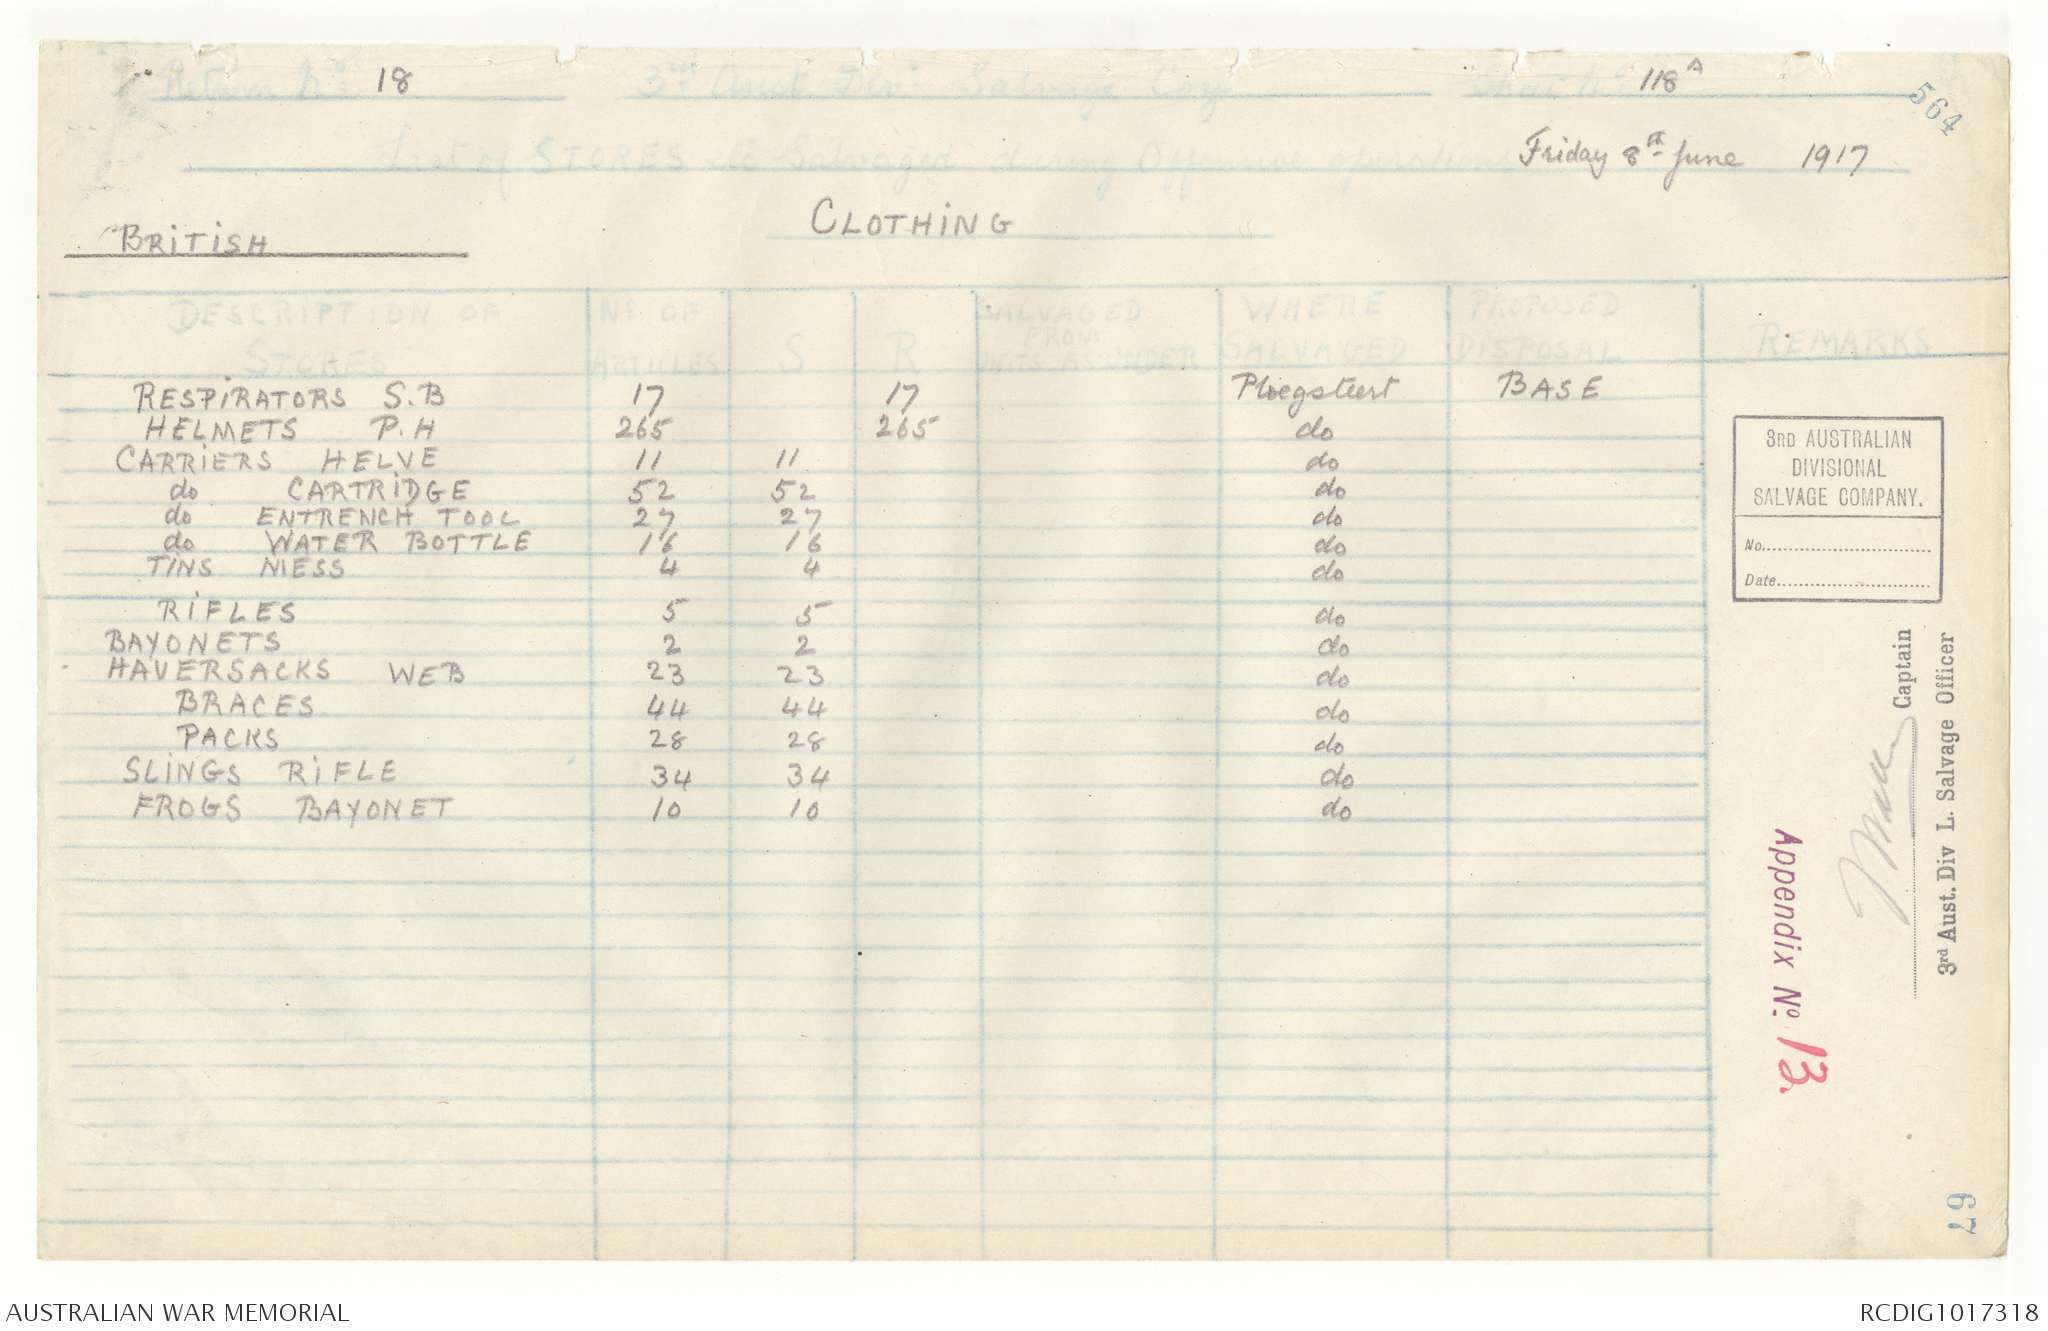 Return No. 18 3rd Aust Div. Salvage Coy Sheet No. 118A
564
List of STORES etc Salvaged during Offensive operations Friday 8th June 1917
BRITISH CLOTHING
DESCRIPTION OF STORES No OF ARTICLES S R SALVAGED FROM UNITS AS UNDER WHERE SALVAGED PROPOSED DISPOSAL REMARKS
RESPIRATORS S.B 17 17 Ploegsteert BASE
HELMETS P.H 265 265 do
CARRIERS HELVE 11 11 do
do CARTRIDGE 52 52 do
do ENTRENCH TOOL 27 27 do
do WATER BOTTLE 16 16 do
TINS MESS 4 4 do
RIFLES 5 5 do
BAYONETS 2 2 do
HAVERSACKS WEB 23 23 do
BRACES 44 44 do
PACKS 28 28 do
SLINGS RIFLE 34 34 do
FROGS BAYONET 10 10 do
3RD AUSTRALIAN
DIVISIONAL
SALVAGE COMPANY.
No.
Date
Captain
3rd Aust. Div L. Salvage Officer
Appendix No. 13.
67
AUSTRALIAN WAR MEMORIAL RCDIG1017318